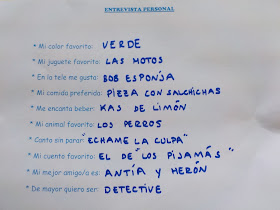 ENTREVISTA PERSONAL
* Mi color favorito: VERDE
* Mi juguete favorito: LAS MOTOS
* En la tele me gusta: BOB ESPONJA
* Mi comida preferida: PIZZA CON SALCHICHAS
* Me encanta beber: KAS DE LIMÓN
* Mi animal favorito: LOS PERROS
* Canto sin parar: "ECHAME LA CULPA"
* Mi cuento favorito: EL DE "LOS PIJAMAS"
* Mi mejor amigo/a es: ANTÍA Y MERÓN
* De mayor quiero ser: DETECTIVE